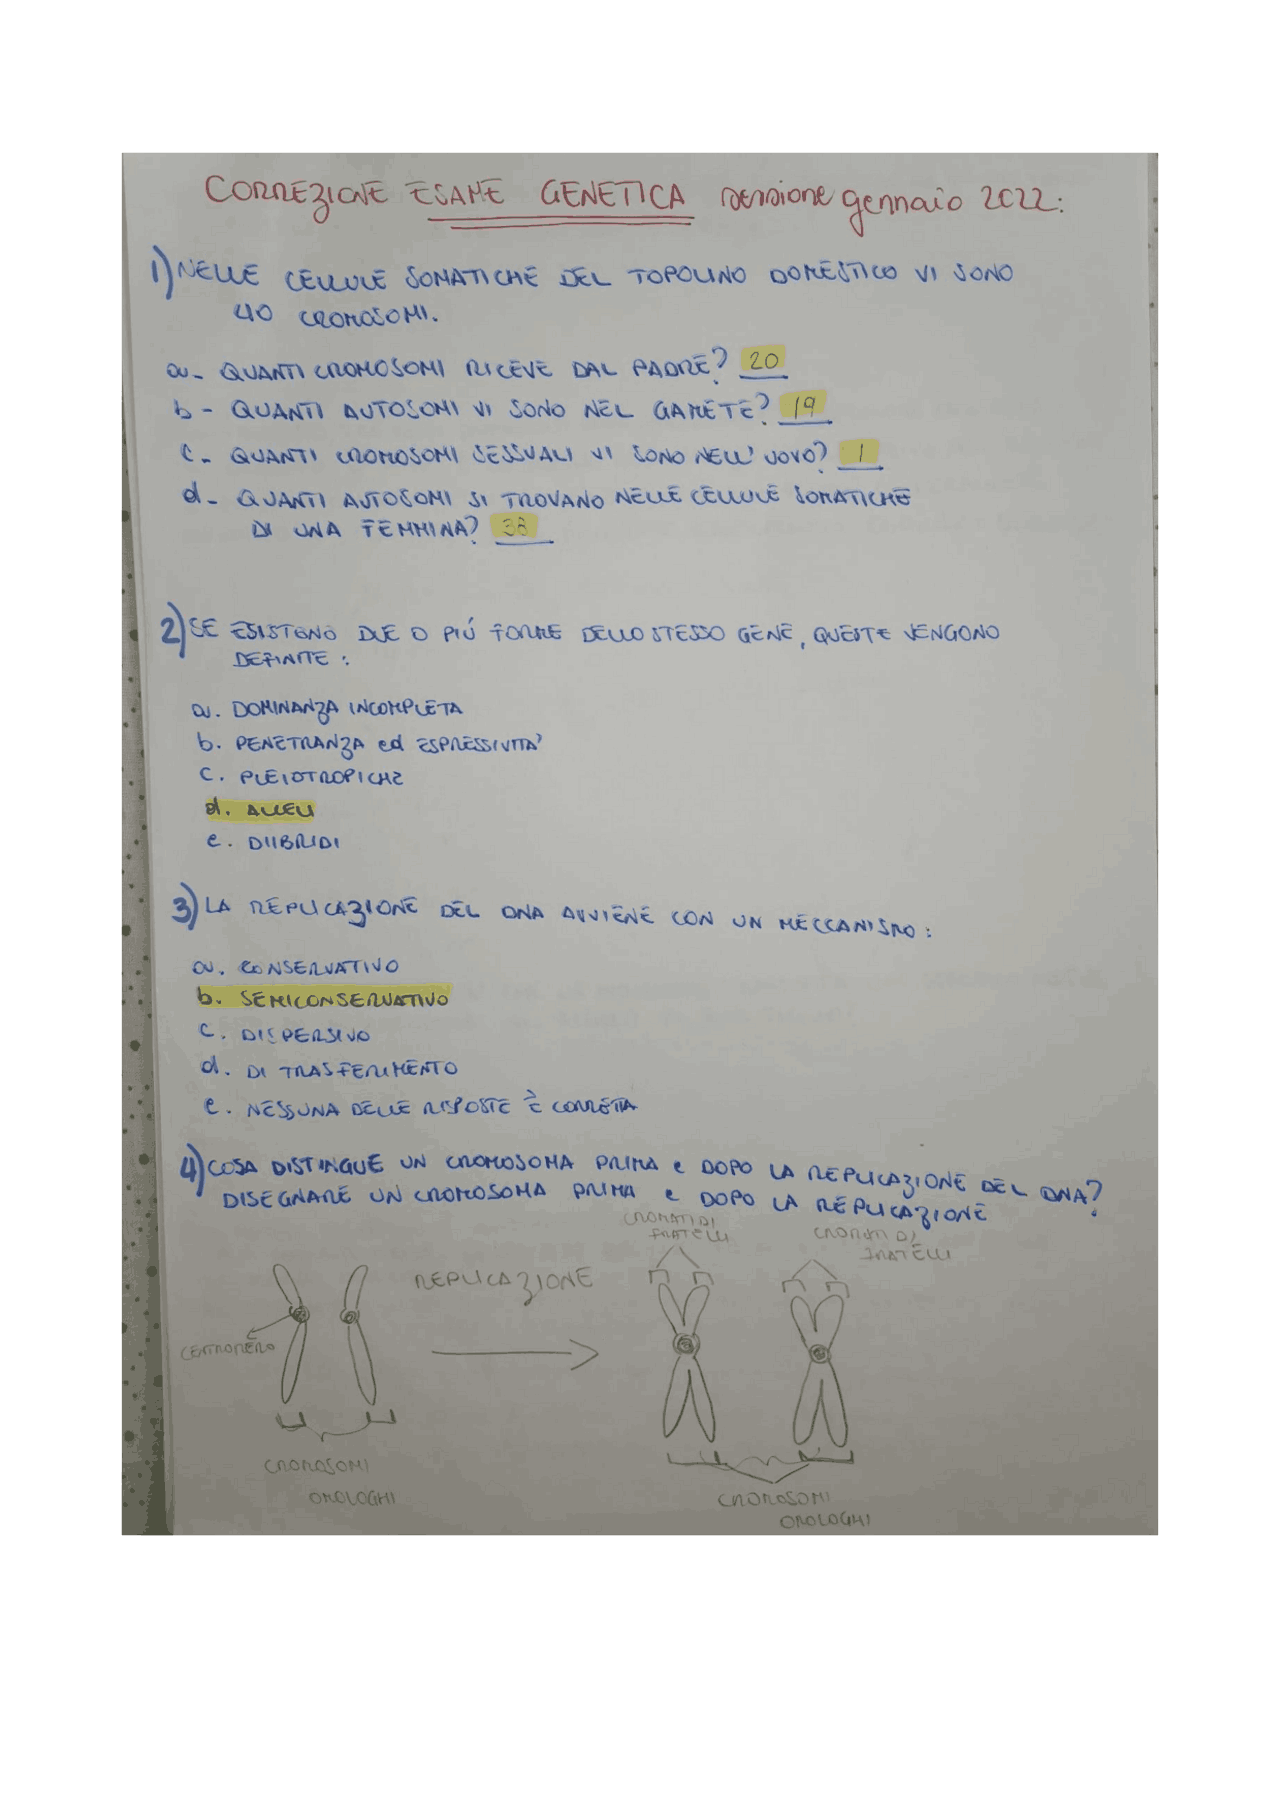 CORREZIONE ESAME GENETICA sessione gennaio 2022:
1) NELLE CELLULE SOMATICHE DEL TOPOLINO DOMESTICO VI SONO
40 CROMOSOMI.
a- QUANTI CROMOSOMI RICEVE DAL PADRE? 20
b- QUANTI AUTOSOMI VI SONO NEL GAMETE? 19
c- QUANTI CROMOSOMI SESSUALI VI SONO NELL'UOVO? 1
d- QUANTI AUTOSOMI SI TROVANO NELLE CELLULE SOMATICHE
DI UNA FEMMINA? 38
2) SE ESISTONO DUE O PIÚ FORME DELLO STESSO GENE, QUESTE VENGONO
DEFINITE:
a. DOMINANZA INCOMPLETA
b. PENETRANZA ed ESPRESSIVITA'
c. PLEIOTROPICHE
d. ALLELI
e. DIIBRIDI
3) LA REPLICAZIONE DEL DNA AVVIENE CON UN MECCANISMO:
a. CONSERVATIVO
b. SEMICONSERVATIVO
c. DISPERSIVO
d. DI TRASFERIMENTO
e. NESSUNA DELLE RISPOSTE È CORRETTA
4) COSA DISTINGUE UN CROMOSOMA PRIMA e DOPO LA REPLICAZIONE DEL DNA?
DISEGNARE UN CROMOSOMA PRIMA e DOPO LA REPLICAZIONE
CROMATIDI
FRATELLI
CROMATIDI
FRATELLI
REPLICAZIONE
CENTROMERO
CROMOSOMI
OMOLOGHI
CROMOSOMI
OMOLOGHI